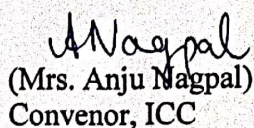 ANagpal
(Mrs. Anju Nagpal)
Convenor, ICC